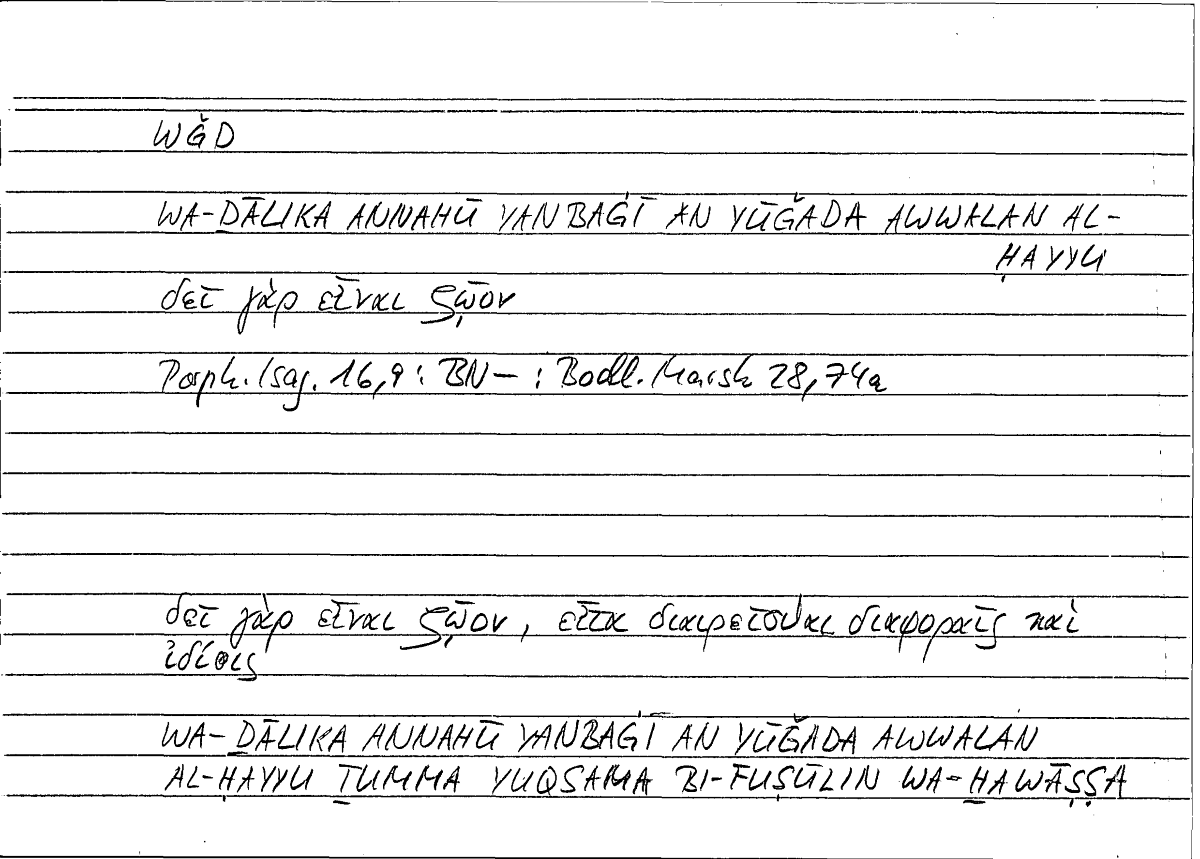 WǦD
WA-ḎĀLIKA ANNAHŪ YANBAĠĪ AN YŪǦADA AWWALAN AL-
ḤAYYU
δεῖ γὰρ εἶναι ζῷον
Porph. Isag. 16,9 : BN – : Bodl. Marsh 28,74a
δεῖ γὰρ εἶναι ζῷον, εἶτα διαιρεῖσθαι διαφοραῖς καὶ
ἰδίοις
WA-ḎĀLIKA ANNAHŪ YANBAĠĪ AN YŪǦADA AWWALAN
AL-ḤAYYU ṮUMMA YUQSAMA BI-FUṢŪLIN WA-ḪAWĀṢṢA